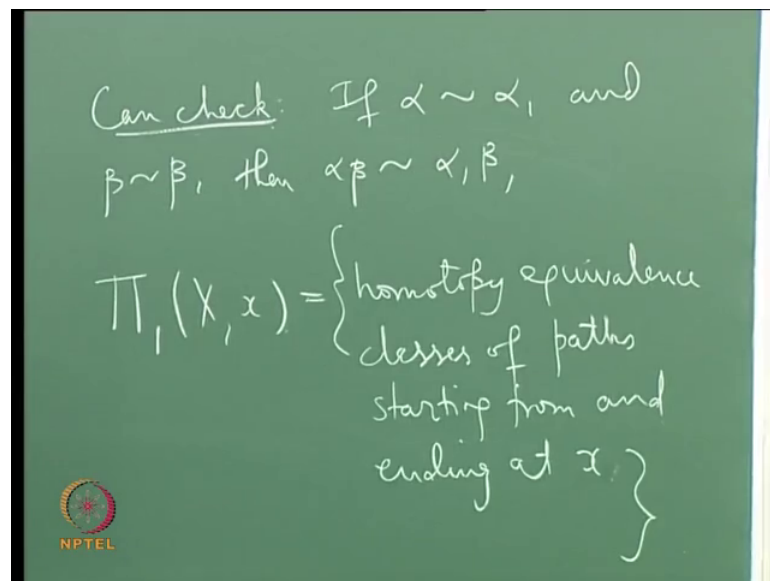 Can check: If α ~ α₁ and
β ~ β₁ then αβ ~ α₁β₁
Π₁(X, x) = {homotopy equivalence
classes of paths
starting from and
ending at x}
NPTEL